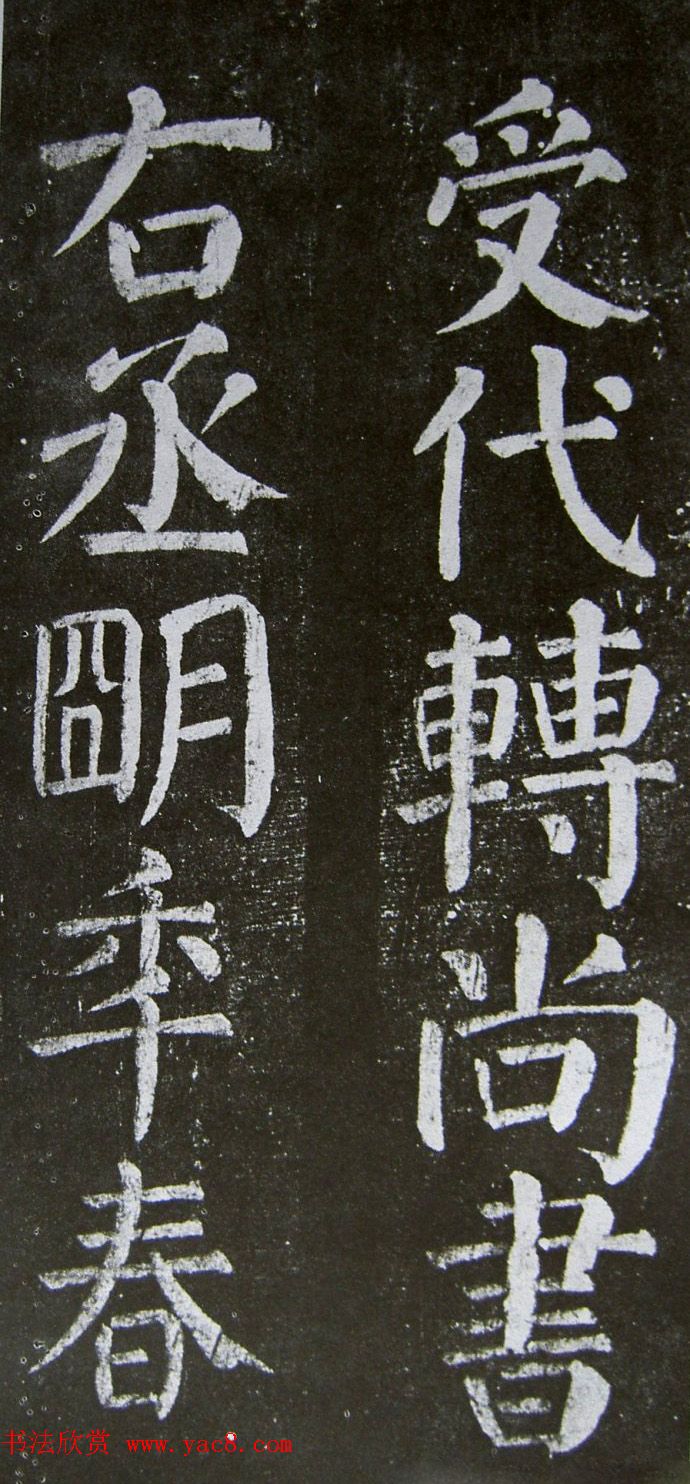 受代轉尚書
右丞明年春
书法欣赏 www.yac8.com